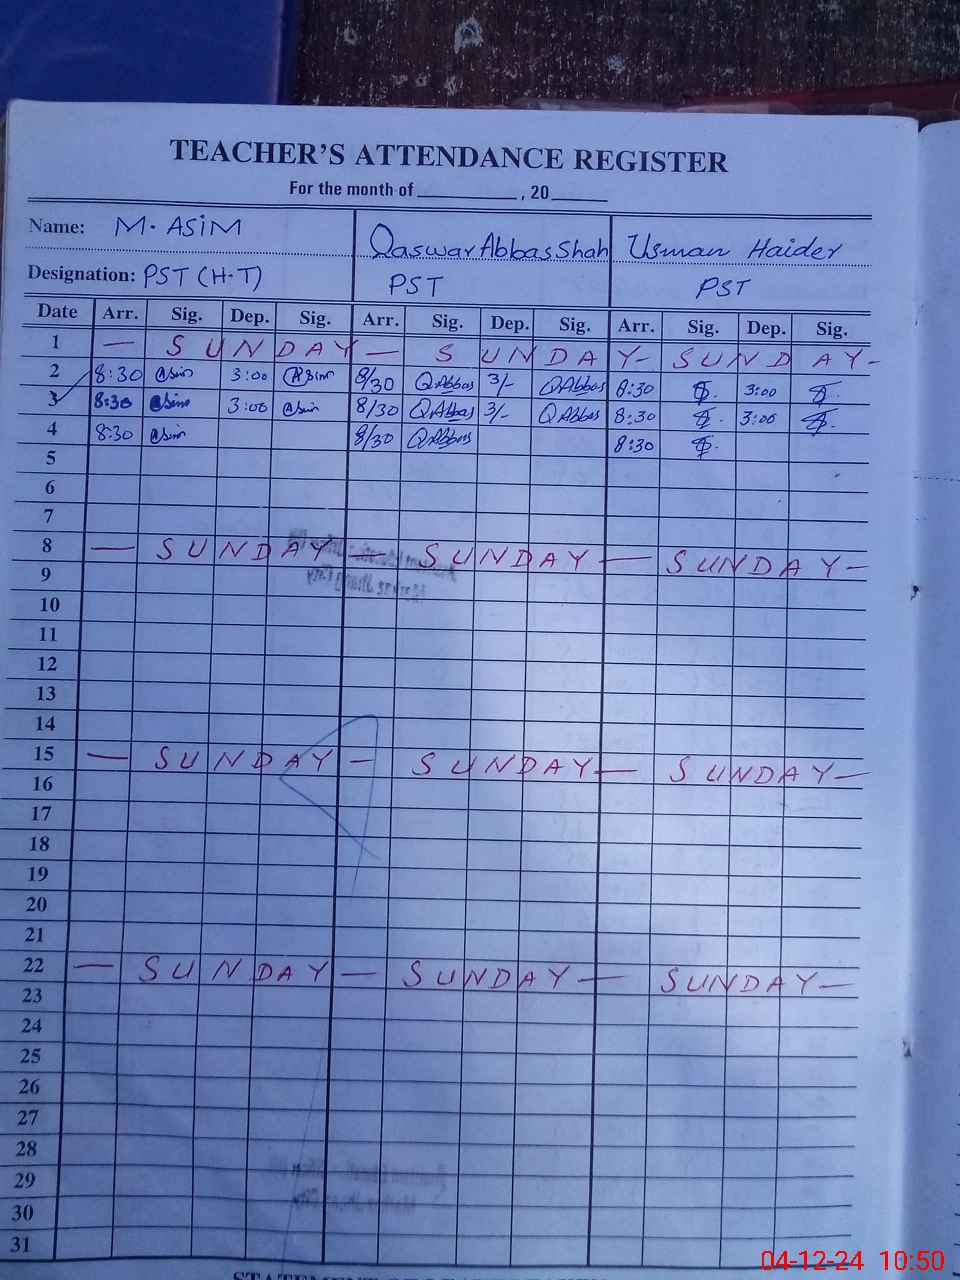 TEACHER'S ATTENDANCE REGISTER
For the month of ____________ , 20______
Name: M. ASiM Qaswar Abbas Shah Usman Haider
Designation: PST (H-T) PST PST
Date Arr. Sig. Dep. Sig. Arr. Sig. Dep. Sig. Arr. Sig. Dep. Sig.
1 — SUNDAY — SUNDAY - SUNDAY -
2 8:30 @sim 3:00 @sim 8/30 QAbbas 3/- QAbbas 8:30 3:00
3 8:30 @sim 3:00 @sim 8/30 QAbbas 3/- QAbbas 8:30 3:00
4 8:30 @sim 8/30 QAbbas 8:30
5
6
7
8 — SUNDAY — SUNDAY — SUNDAY —
9
10
11
12
13
14
15 — SUNDAY — SUNDAY — SUNDAY —
16
17
18
19
20
21
22 — SUNDAY — SUNDAY — SUNDAY —
23
24
25
26
27
28
29
30
31
04-12-24 10:50